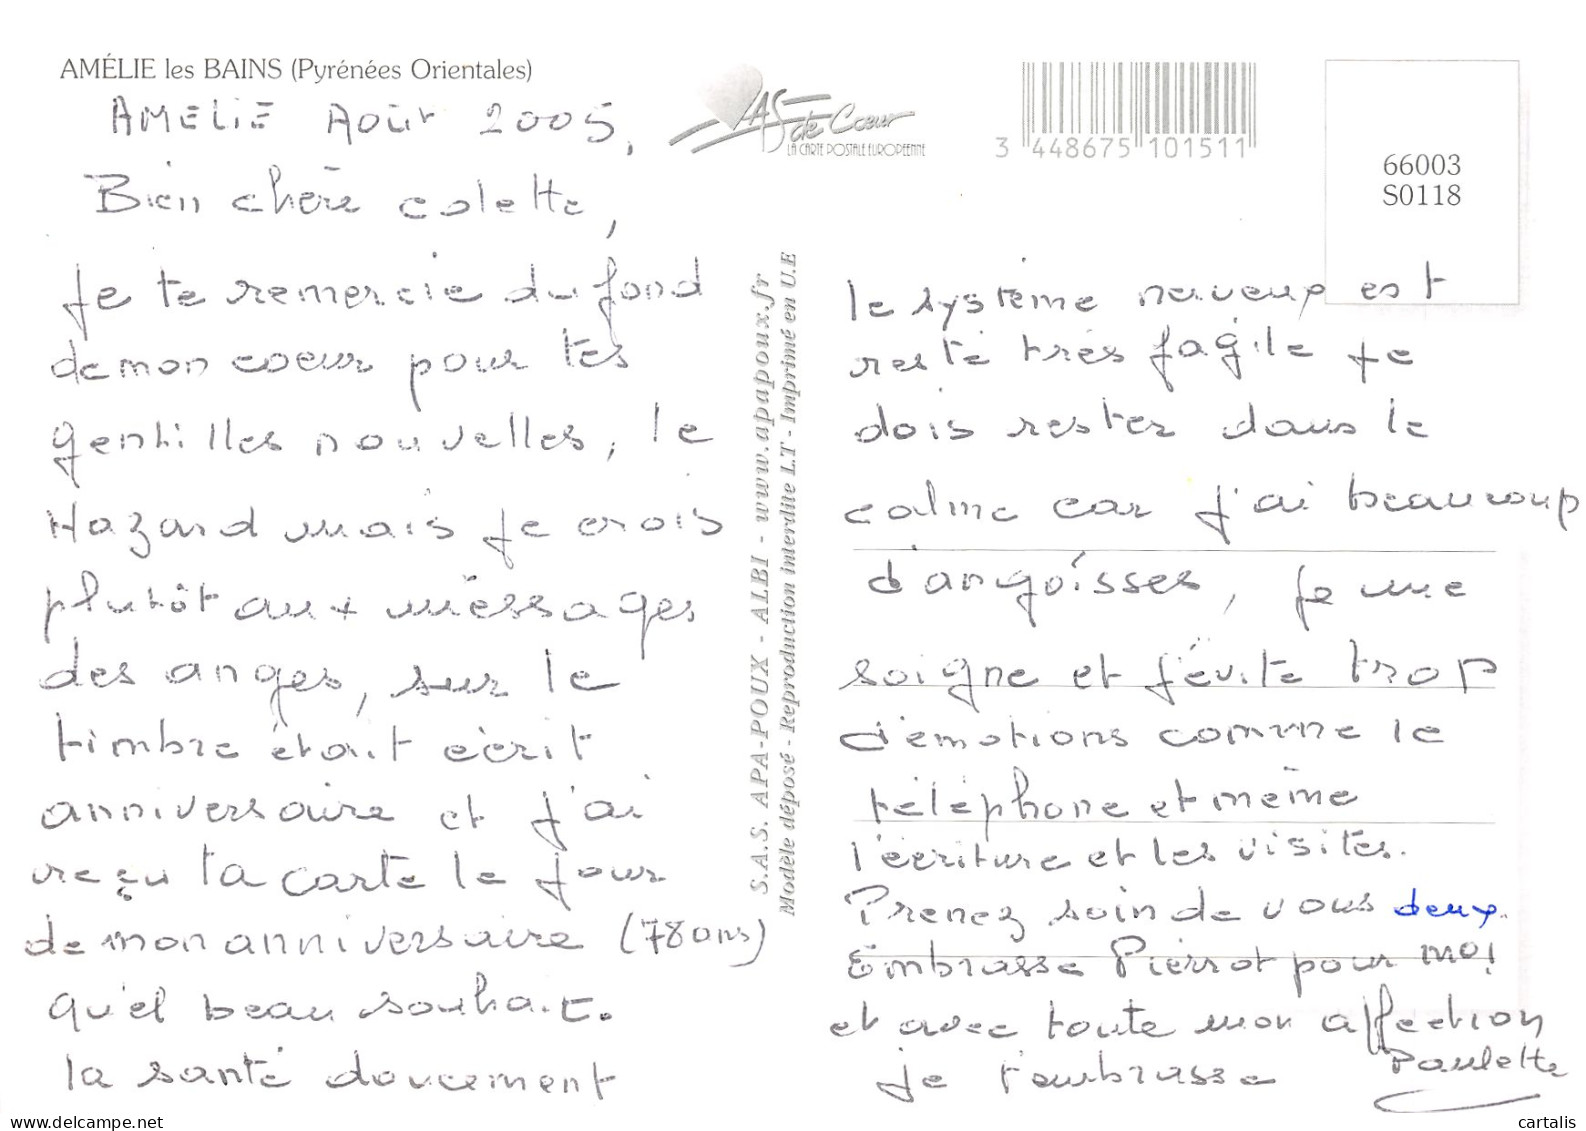 AMÉLIE les BAINS (Pyrénées Orientales)
AMELIE Août 2005,
Bien chère colette,
Je te remercie du fond
de mon coeur pour tes
gentilles nouvelles, le
Hazard mais je crois
plutôt aux méssages
des anges, sur le
timbre était écrit
anniversaire et j'ai
reçu ta carte le jour
de mon anniversaire (78 ans)
qu'el beau souhait.
la santé doucement
As de Coeur
LA CARTE POSTALE EUROPEENNE
3 448675 101511
66003
S0118
S.A.S. APA-POUX - ALBI - www.apapoux.fr
Modèle déposé - Reproduction interdite LT - Imprimé en U.E
le système nerveux est
resté très fagile je
dois rester dans le
calme car j'ai beaucoup
d'angoisses, je me
soigne et j'évite trop
d'émotions comme le
téléphone et même
l'écriture et les visites.
Prenez soin de vous deux.
Embrasse Pierrot pour moi
et avec toute mon affection
je t'embrasse Paulette
www.delcampe.net
cartalis